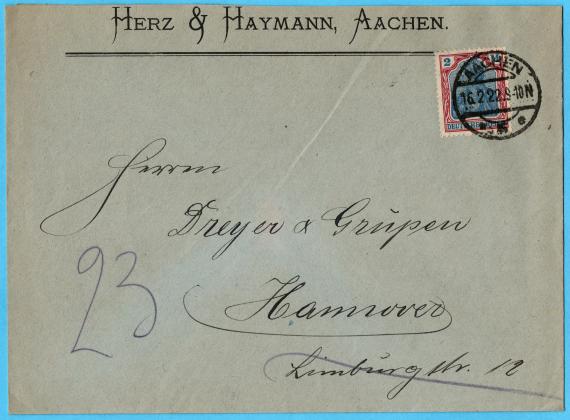 HERZ & HAYMANN, AACHEN.
2
AACHEN
16.2.22.9-10N
DEUTSCHES REICH
Herren
Dreyer & Grüpen
Hannover
23
Limburgstr. 12